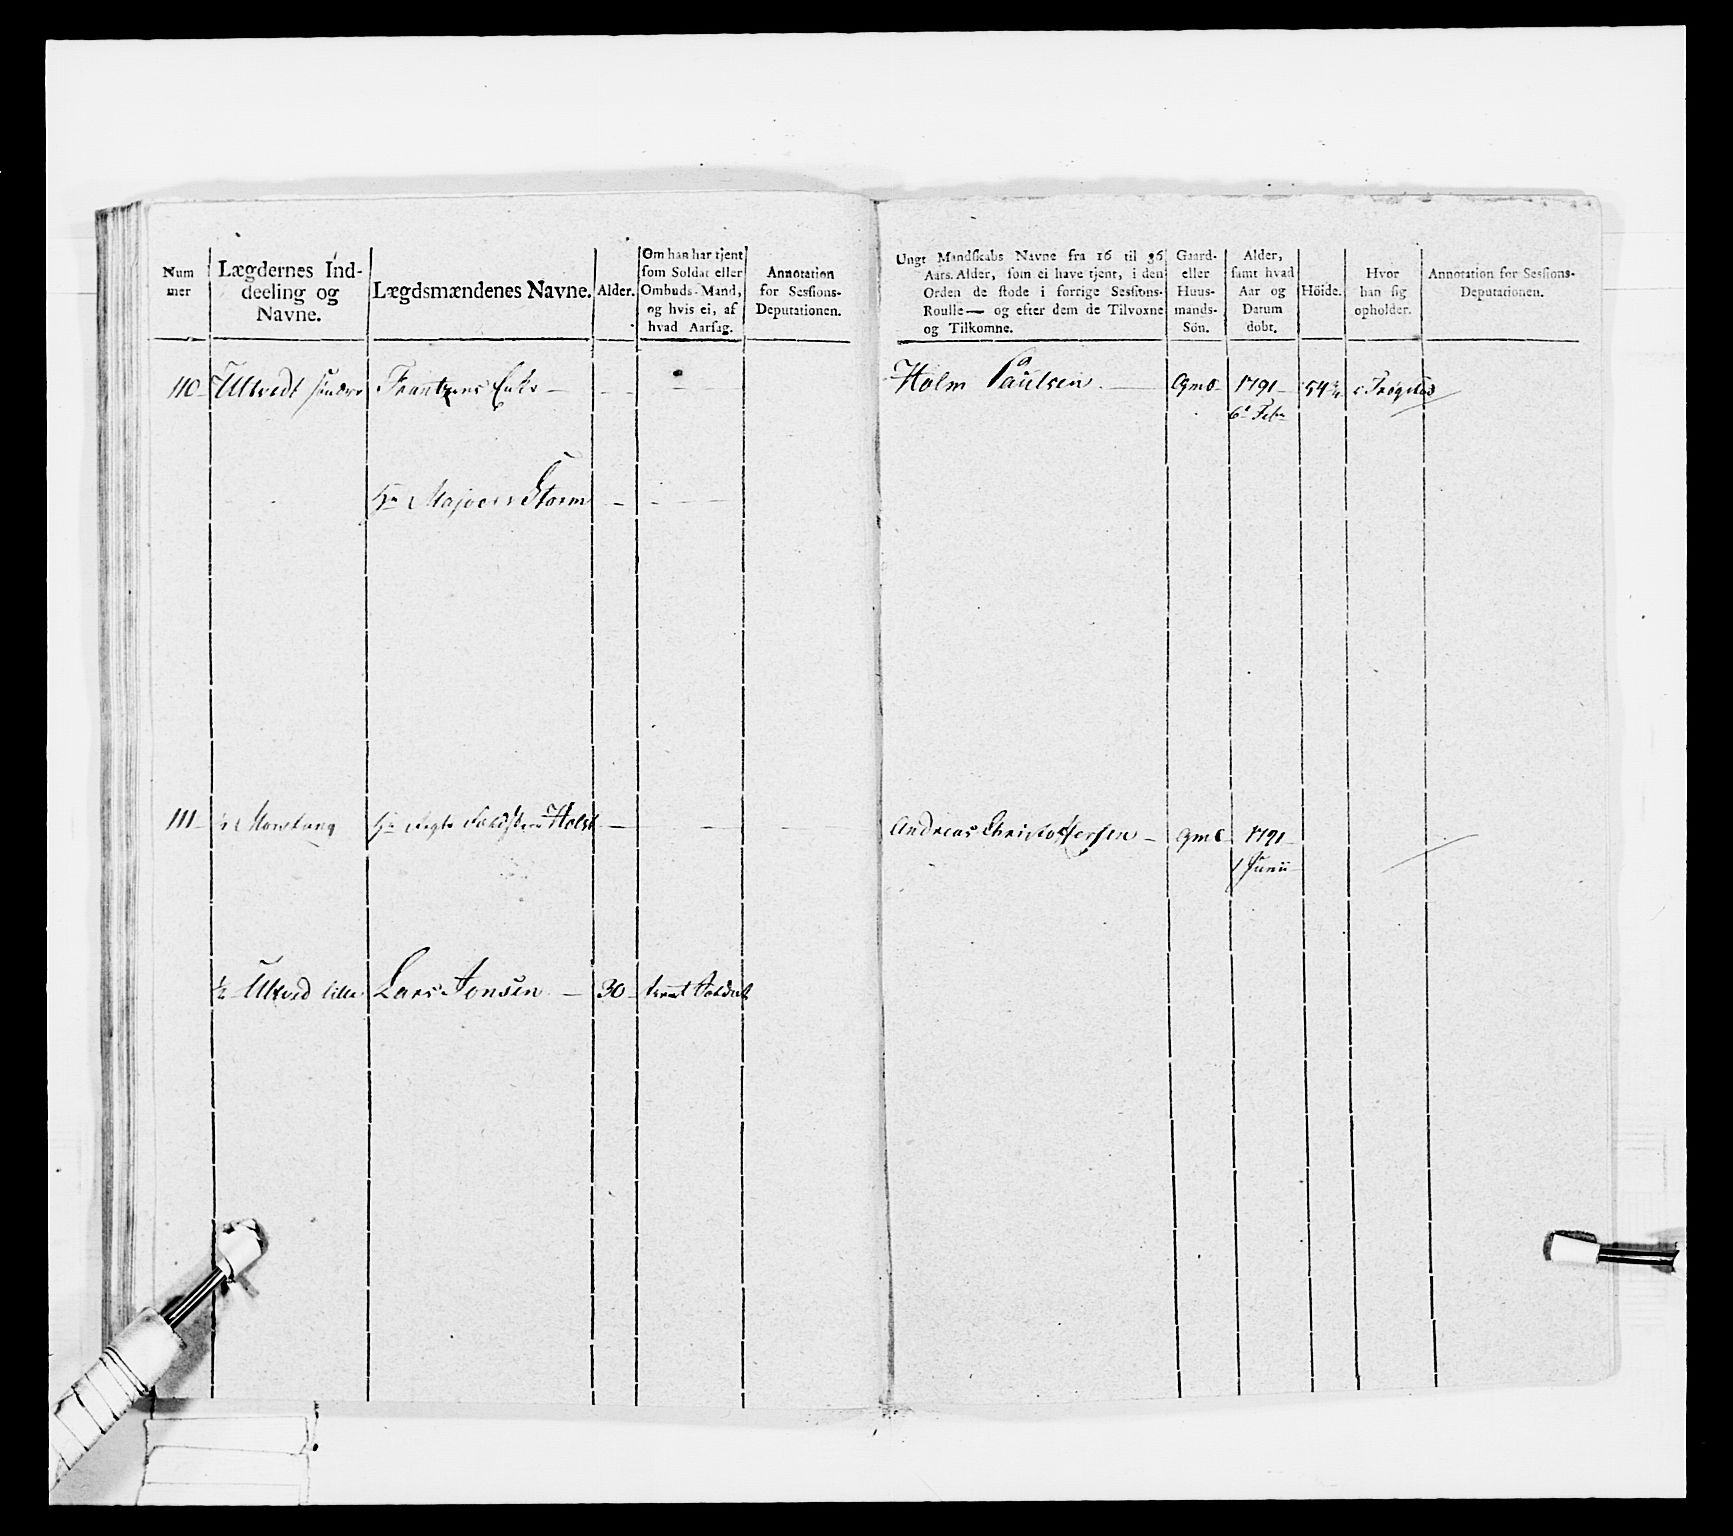 Num
mer
Lægdernes Ind-
deeling og
Navne.
Lægdsmændenes Navne.
Alder.
Om han har tjent
som Soldat eller
Ombuds-Mand,
og hvis ei, af
hvad Aarsag.
Annotation
for Sessions-
Deputationen.
Ungt Mandskabs Navne fra 16 til 36
Aars Alder, som ei have tjent, i den
Orden de stode i forrige Sessions-
Roulle— og efter dem de Tilvoxne
og Tilkomne.
Gaard-
eller
Huus-
mands-
Sön.
Alder,
samt hvad
Aar og
Datum
dobt.
Höide.
Hvor
han sig
opholder.
Annotation for Sessions-
Deputationen.
110 Ultvedt søndre Frantzens Enke — — — Holm Paulsen — Gmd 1791 54¾ i Trøgstad
6t Febr
Hr Majoer Storm — — —
111 ½ Monstang Hr Holst — — — Andreas Christoffersen — Gmd 1791
1 Junii
½ Ultved lille Lars Jonsen — 30 tient Soldat